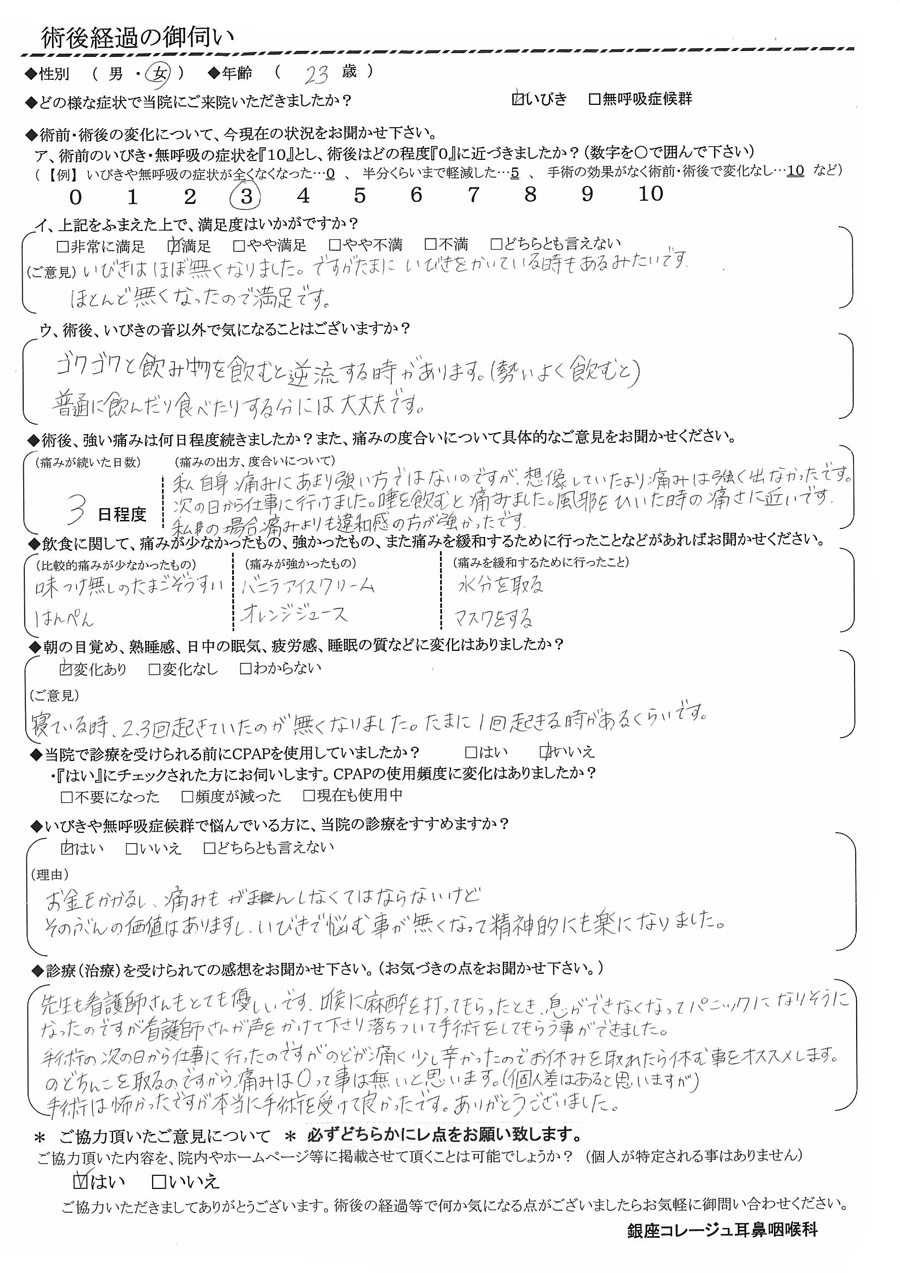 術後経過の御伺い
◆性別 ( 男 ・ 女 ) ◆年齢 ( 23 歳 )
◆どの様な症状で当院にご来院いただきましたか? ☑いびき □無呼吸症候群
◆術前・術後の変化について、今現在の状況をお聞かせ下さい。
ア、術前のいびき・無呼吸の症状を『10』とし、術後はどの程度『0』に近づきましたか?(数字を〇で囲んで下さい)
(【例】いびきや無呼吸の症状が全くなくなった…0 、 半分くらいまで軽減した…5 、 手術の効果がなく術前・術後で変化なし…10 など)
0 1 2 3 4 5 6 7 8 9 10
イ、上記をふまえた上で、満足度はいかがですか?
□非常に満足 ☑満足 □やや満足 □やや不満 □不満 □どちらとも言えない
(ご意見) いびきは ほぼ無くなりました。ですがたまに いびきをかいている時もあるみたいです.
ほとんど無くなったので満足です。
ウ、術後、いびきの音以外で気になることはございますか?
ゴクゴクと飲み物を飲むと逆流する時があります。(勢いよく飲むと)
普通に飲んだり食べたりする分には大丈夫です。
◆術後、強い痛みは何日程度続きましたか?また、痛みの度合いについて具体的なご意見をお聞かせください。
(痛みが続いた日数) (痛みの出方、度合いについて)
私自身痛みにあまり強い方ではないのですが、想像していたより痛みは強く出なかったです。
3 日程度 次の日から仕事に行けました。唾を飲むと痛みました。風邪をひいた時の痛さに近いです.
私の場合痛みよりも違和感の方が強かったです.
◆飲食に関して、痛みが少なかったもの、強かったもの、また痛みを緩和するために行ったことなどがあればお聞かせください。
(比較的痛みが少なかったもの) (痛みが強かったもの) (痛みを緩和するために行ったこと)
味つけ無しのたまごぞうすい バニラアイスクリーム 水分を取る
はんぺん オレンジジュース マスクをする
◆朝の目覚め、熟睡感、日中の眠気、疲労感、睡眠の質などに変化はありましたか?
☑変化あり □変化なし □わからない
(ご意見)
寝ている時、2.3回起きていたのが無くなりました。たまに1回起きる時があるくらいです。
◆当院で診療を受けられる前にCPAPを使用していましたか? □はい ☑いいえ
・『はい』にチェックされた方にお伺いします。CPAPの使用頻度に変化はありましたか?
□不要になった □頻度が減った □現在も使用中
◆いびきや無呼吸症候群で悩んでいる方に、当院の診療をすすめますか?
☑はい □いいえ □どちらとも言えない
(理由)
お金もかかるし、痛みもがまんしなくてはならないけど
そのぶんの価値はありますし、いびきで悩む事が無くなって精神的にも楽になりました。
◆診療(治療)を受けられての感想をお聞かせ下さい。(お気づきの点をお聞かせ下さい。)
先生も看護師さんもとても優しいです。喉に麻酔を打ってもらったとき、息ができなくなってパニックになりそうに
なったのですが看護師さんが声をかけて下さり落ちついて手術をしてもらう事ができました。
手術の次の日から仕事に行ったのですがのどが痛く少し辛かったのでお休みを取れたら休む事をオススメします。
のどちんこを取るのですから痛みは0って事は無いと思います。(個人差はあると思いますが)
手術は怖かったですが本当に手術を受けて良かったです。ありがとうございました。
* ご協力頂いたご意見について * 必ずどちらかにレ点をお願い致します。
ご協力頂いた内容を、院内やホームページ等に掲載させて頂くことは可能でしょうか? (個人が特定される事はありません)
☑はい □いいえ
ご協力いただきましてありがとうございます。術後の経過等で何か気になる点がございましたらお気軽に御問い合わせください。
銀座コレージュ耳鼻咽喉科